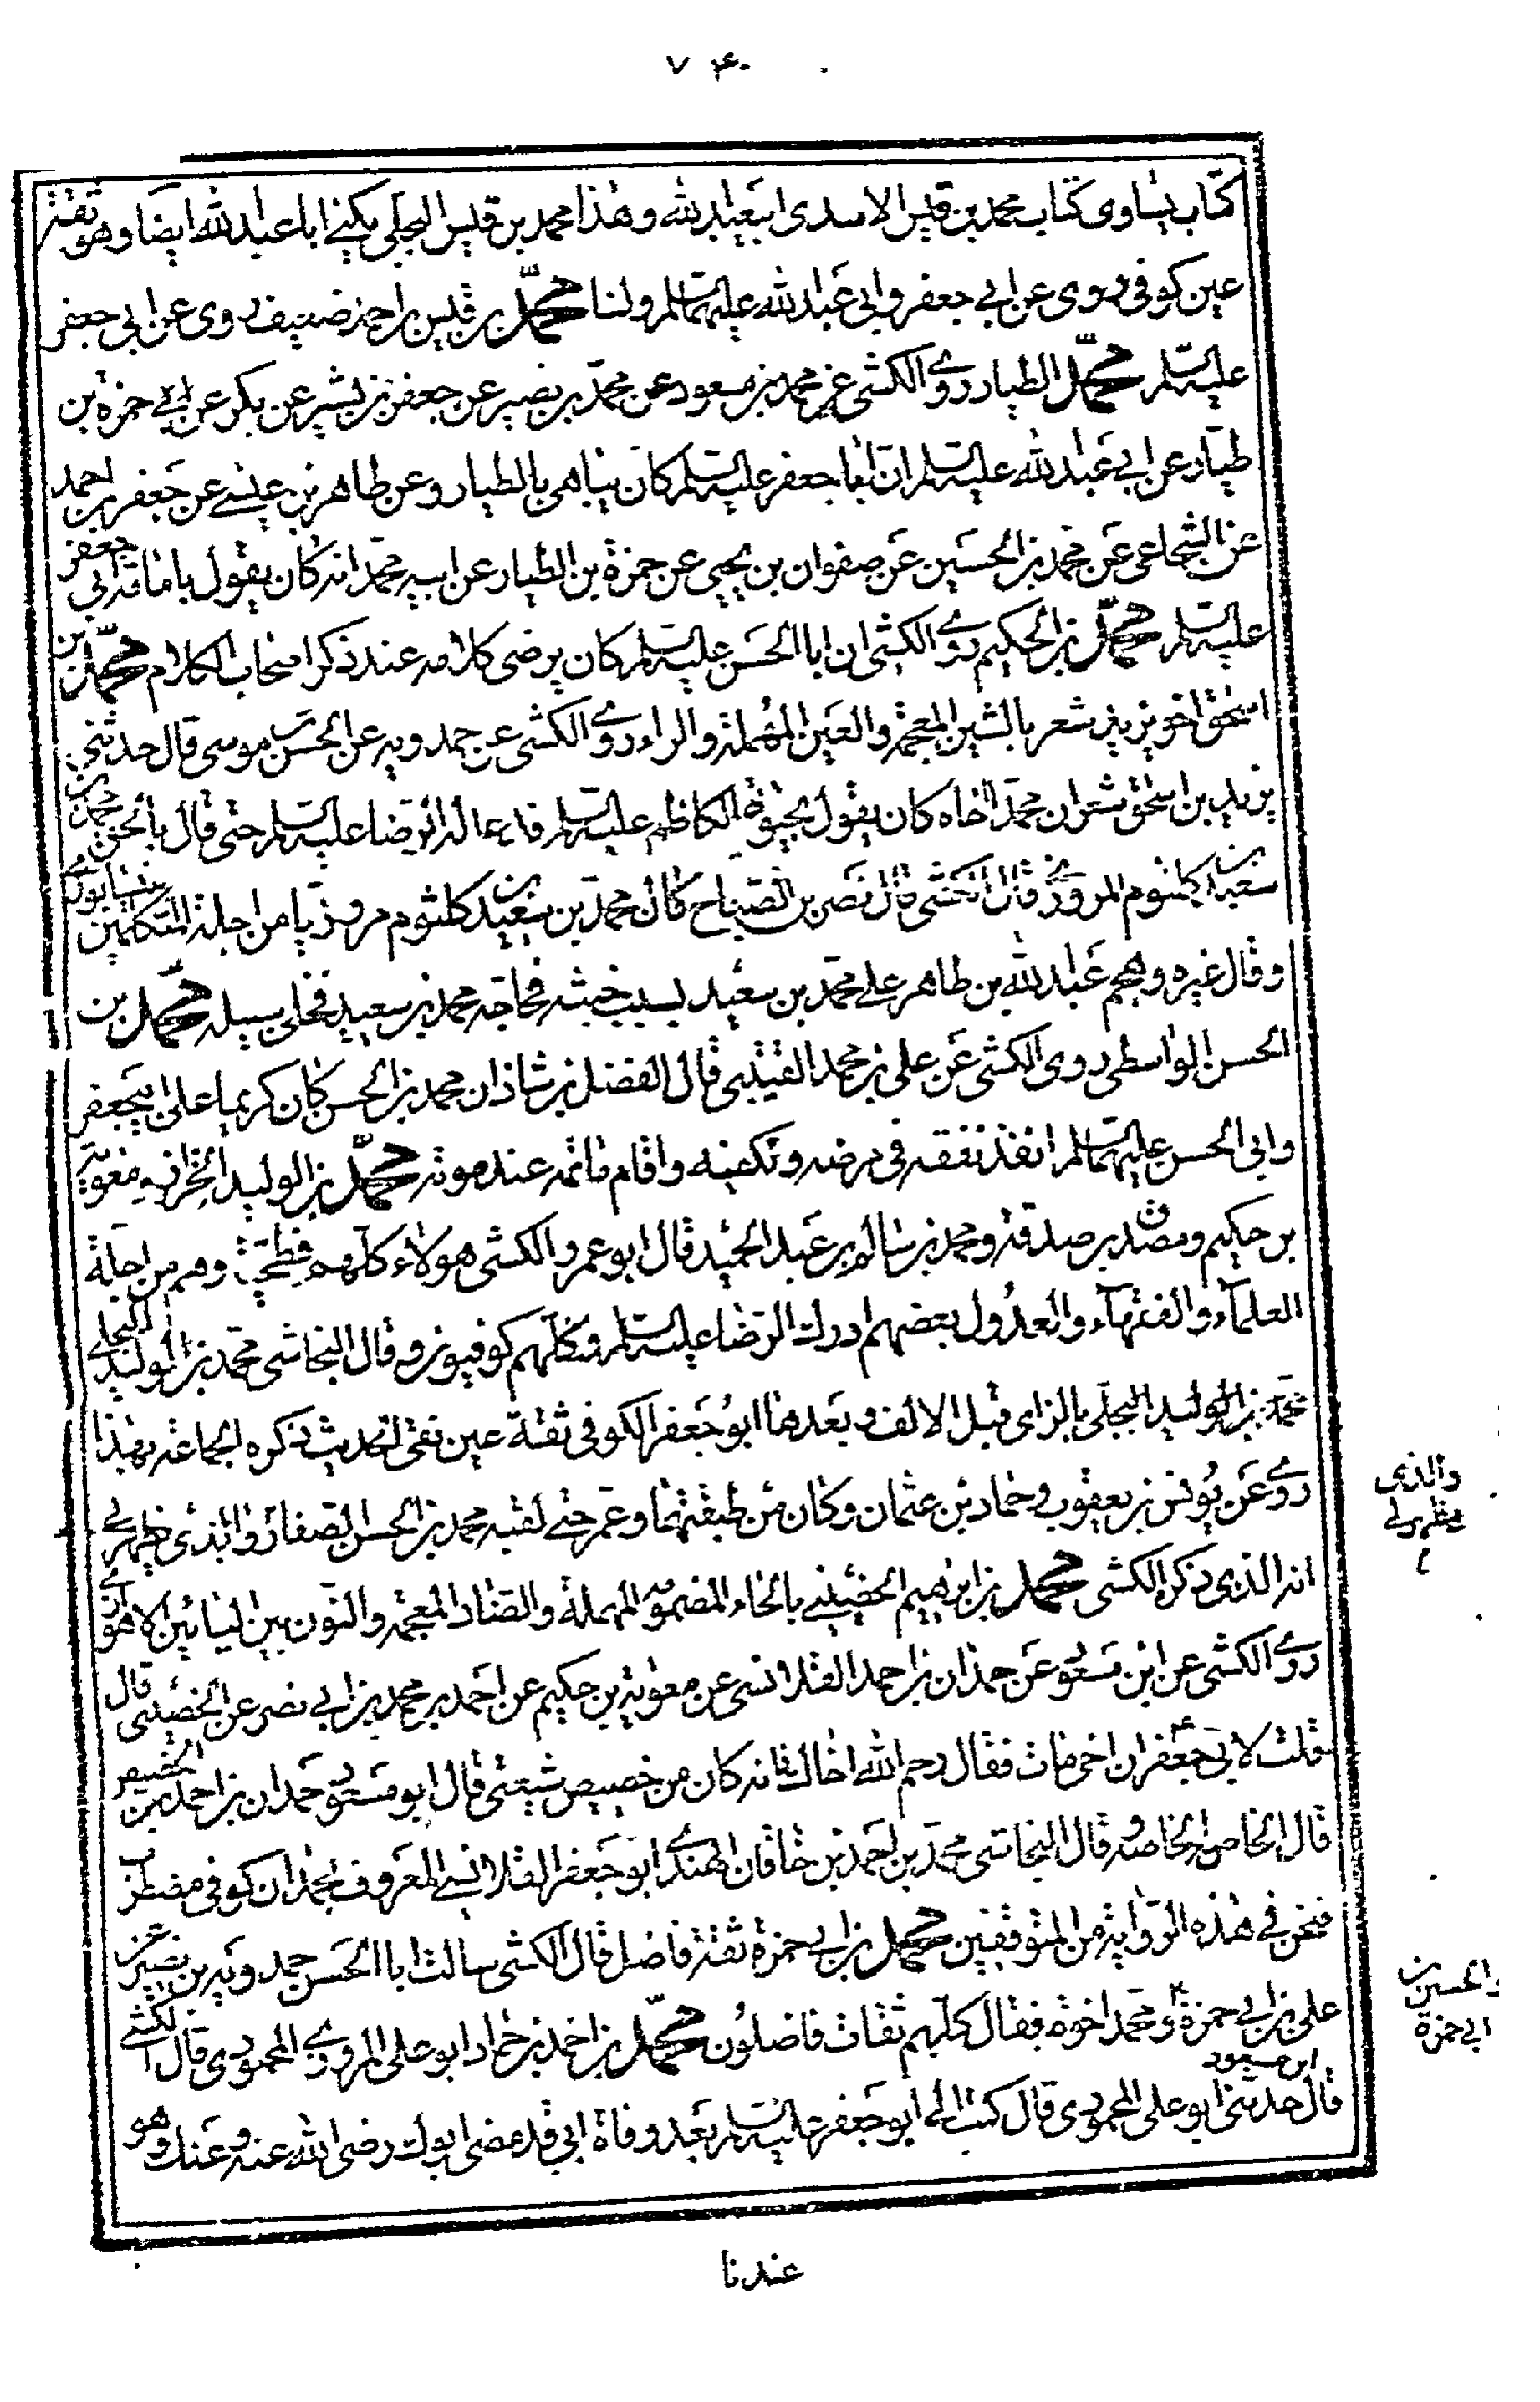 ۷۴
كتاب يساوى كتاب محمد بن قيس الاسدى ابى عبد الله وهذا محمد بن قيس البجلى يكنى ابا عبد الله ايضا وهو ثقة
عين كوفى روى عن ابى جعفر وابى عبد الله عليهما السلم ولنا محمد بن قيس بن احمر ضعيف روى عن ابى جعفر
عليه السلم محمد الطيار روى الكشى عن محمد بن مسعود عن محمد بن نصير عن جعفر بن بشير عن بكر عن ابى حمزة بن
طيار عن ابى عبد الله عليه السلم ان ابا جعفر عليه السلم كان يباهى بالطيار وعن طاهر بن عيسى عن جعفر بن احمد
عن الشجاعى عن محمد بن الحسين عن صفوان بن يحيى عن حمزة بن الطيار عن ابيه محمد انه كان يقول بامامة ابى جعفر
عليه السلم محمد بن الحكيم روى الكشى ان ابا الحسن عليه السلم كان يرضى كلامه عند ذكر اصحاب الكلام محمد بن
اسحق اخو يزيد شعر بالشين المعجمة والعين المهملة والراء روى الكشى عن حمدويه عن الحسن بن موسى قال حدثنى
يزيد بن اسحق شعر ان محمدا اخاه كان يقول بحيوة الكاظم عليه السلم فدعا له الرضا عليه السلم حتى قال بالحق محمد بن
سعيد بن كلثوم المروزى قال الكشى قال نصر بن الصباح كان محمد بن سعيد بن كلثوم مروزيا من اجلة المتكلمين بنيسابور
وقال غيره وهجم عبد الله بن طاهر على محمد بن سعيد بسبب خبثه فحاجه محمد بن سعيد فخلى سبيله محمد بن
الحسن الواسطى روى الكشى عن على بن محمد القتيبى قال الفضل بن شاذان محمد بن الحسن كان كريما على ابى جعفر
وابى الحسن عليهما السلم انفذ نفقته فى مرضه وتكفينه واقام ماتمه عند موته محمد بن الوليد الخزاز ومعوية
بن حكيم ومصدق بن صدقة ومحمد بن سالم بن عبد الحميد قال ابو عمرو الكشى هولاء كلهم فطحية وهم من اجلة
العلماء والفقهاء والعدول بعضهم ادرك الرضا عليه السلم وكلهم كوفيون وقال النجاشى محمد بن الوليد البجلى
محمد بن الوليد البجلى بالزاى قبل الالف وبعدها ابو جعفر الكوفى ثقة عين نقى الحديث ذكره الجماعة بهذا
روى عن يونس بن يعقوب وحماد بن عثمان وكان من طبقتهما وعمر حتى لقيه محمد بن الحسن الصفار والذى يظهر لى
انه الذى ذكره الكشى محمد بن ابرهيم الحضينى بالحاء المضمومة المهملة والضاد المعجمة والنون بين اليائين الاهوازى
روى الكشى عن ابن مسعود عن حمدان بن احمد القلانسى عن معوية بن حكيم عن احمد بن محمد بن ابى نصر عن الحضينى قال
قلت لابى جعفر ان اخى مات فقال رحم الله اخاك فانه كان من خصيص شيعتى قال ابو مسعود حمدان بن احمد من الخصيص
قال الخاص الخاصة وقال النجاشى محمد بن احمد بن خاقان النهدى ابو جعفر القلانسى المعروف بحمدان كوفى مضطرب
فنحن فى هذه الرواية من المتوقفين محمد بن ابى حمزة ثقة فاضل قال الكشى سالت ابا الحسن حمدويه بن نصير عن
على بن ابى حمزة ومحمد اخوه فقال كلهم ثقات فاضلون محمد بن احمد بن حماد ابو على المروزى المحمودى قال الكشى
ابن مسعود
قال حدثنى ابو على المحمودى قال كتب الى ابو جعفر عليه السلم بعد وفاة ابى قد مضى ابوك رضى الله عنه وعنك وهو
والذى
يظهر لى
والحسين بن
ابى حمزة
عندنا